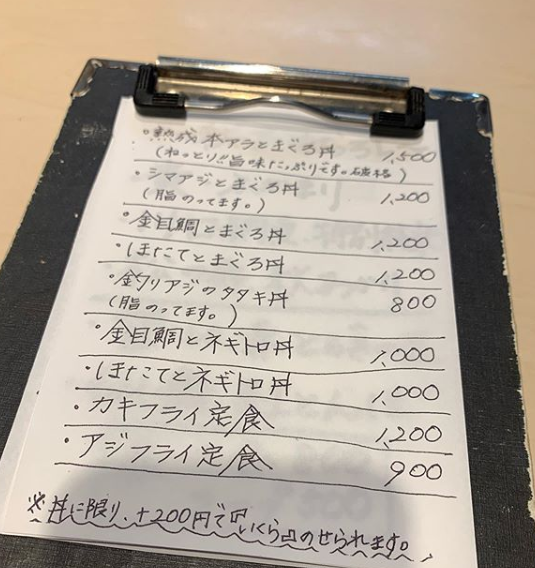 ・熟成本アラとまぐろ丼 1,500
(ねっとり!!旨味たっぷりです。破格)
・シマアジとまぐろ丼 1,200
(脂のってます。)
・金目鯛とまぐろ丼 1,200
・ほたてとまぐろ丼 1,200
・釣りアジのタタキ丼 800
(脂のってます。)
・金目鯛とネギトロ丼 1,000
・ほたてとネギトロ丼 1,000
・カキフライ定食 1,200
・アジフライ定食 900
※丼に限り、+200円で『いくら』のせられます。